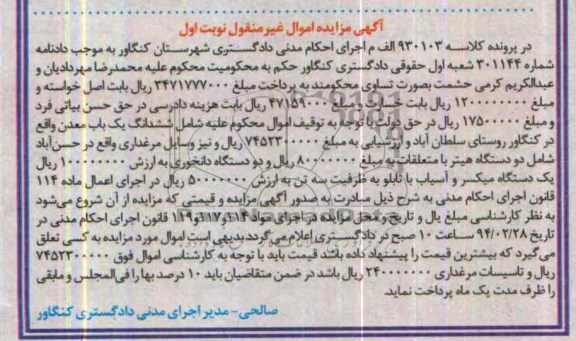 آگهی مزایده اموال غیرمنقول نوبت اول
در پرونده کلاسه ۹۳۰۱۰۳ الف م اجرای احکام مدنی دادگستری شهرستان کنگاور به موجب دادنامه
شماره ۳۰۱۱۴۴ شعبه اول حقوقی دادگستری کنگاور حکم به محکومیت محکوم علیه محمدرضا مهردادیان و
عبدالکریم کرمی حشمت بصورت تساوی محکومند به پرداخت مبلغ ۳۴۷۱۷۷۷۰۰۰ ریال بابت اصل خواسته و
مبلغ ۱۲۰۰۰۰۰۰۰۰ ریال بابت خسارت و مبلغ ۴۷۱۵۹۰۰۰ ریال بابت هزینه دادرسی در حق حسن بیاتی فرد
و مبلغ ۱۷۵۰۰۰۰۰۰ ریال در حق دولت با توجه به توقیف اموال محکوم علیه شامل ششدانگ یک باب معدن واقع
در کنگاور روستای سلطان آباد و ارزشیابی به مبلغ ۷۴۵۲۳۰۰۰۰۰ ریال و نیز وسایل مرغداری واقع در حسن‌آباد
شامل دو دستگاه هیتر با متعلقات به مبلغ ۸۰۰۰۰۰۰۰ ریال و دو دستگاه دانخوری به ارزش ۱۰۰۰۰۰۰۰۰ ریال
یک دستگاه میکسر و آسیاب با تابلو به ظرفیت سه تن به ارزش ۵۰۰۰۰۰۰۰ ریال در اجرای اعمال ماده ۱۱۴
قانون اجرای احکام مدنی به شرح ذیل مبادرت به صدور آگهی مزایده و قیمتی که مزایده از آن شروع می‌شود
به نظر کارشناسی مبلغ یال و تاریخ و محل مزایده در اجرای مواد ۱۱۴و۱۱۷و۱۱۹ قانون اجرای احکام مدنی در
تاریخ ۹۴/۰۲/۲۸ ساعت ۱۰ صبح در دادگستری اعلام می‌گردد بدیهی است اموال مورد مزایده به کسی تعلق
می‌گیرد که بیشترین قیمت را پیشنهاد داده باشد قیمت باید با توجه به کارشناسی اموال فوق ۷۴۵۲۳۰۰۰۰۰
ریال و تاسیسات مرغداری ۲۴۰۰۰۰۰۰۰ ریال باشد در ضمن متقاضیان باید ۱۰ درصد بها را فی‌المجلس و مابقی
را ظرف مدت یک ماه پرداخت نماید.
صالحی- مدیر اجرای مدنی دادگستری کنگاور